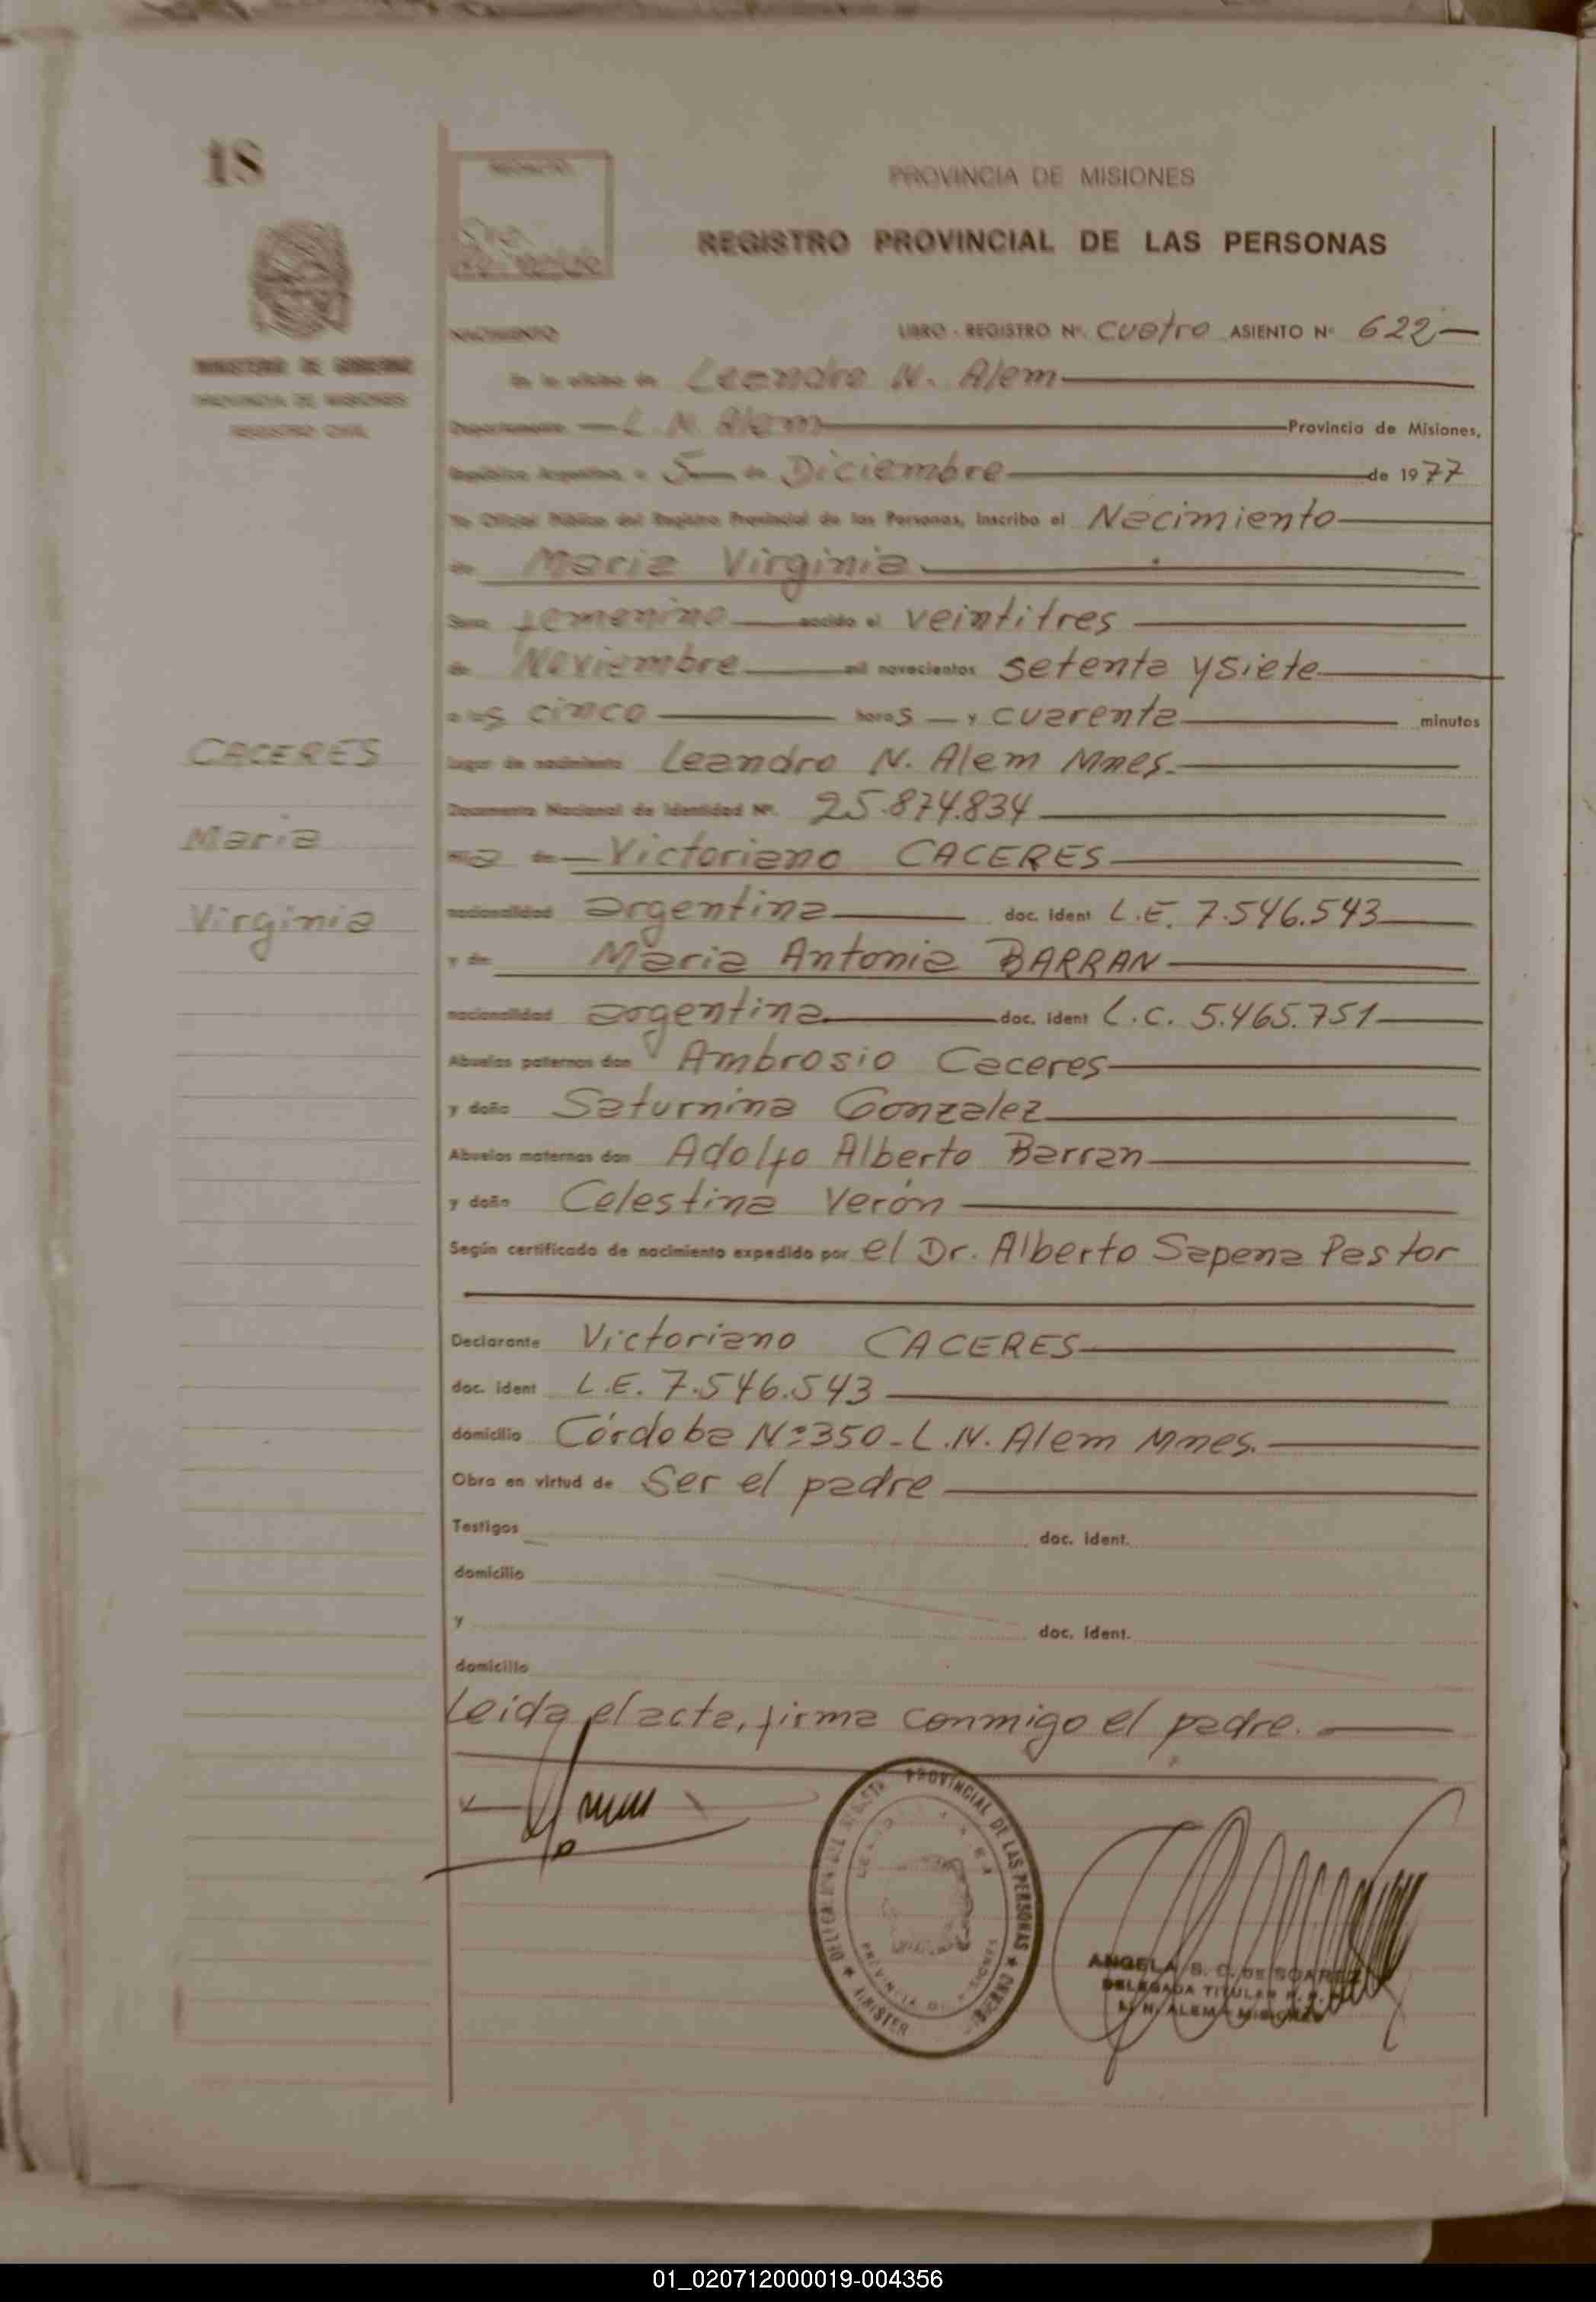 18
PROVINCIA DE MISIONES
REGISTRO PROVINCIAL DE LAS PERSONAS
MINISTERIO DE GOBIERNO
PROVINCIA DE MISIONES
REGISTRO CIVIL
NACIMIENTO LIBRO - REGISTRO Nº. cuatro ASIENTO Nº 622
En la oficina de Leandro N. Alem
Departamento L. N. Alem Provincia de Misiones,
República Argentina a 5 de Diciembre de 1977
Yo Oficial Público del Registro Provincial de las Personas, inscribo el Nacimiento
de Maria Virginia
Sexo femenino nacido el veintitres
de Noviembre mil novecientos setenta y siete
a las cinco horas y cuarenta minutos
CACERES
Lugar de nacimiento Leandro N. Alem Mnes.
Documento Nacional de Identidad Nº. 25.874.834
Maria
Hija de Victoriano CACERES
Virginia
nacionalidad argentina doc. ident L.E. 7.546.543
y de Maria Antonia BARRAN
nacionalidad argentina doc. ident L.C. 5.465.751
Abuelos paternos don Ambrosio Caceres
y doña Saturnina Gonzalez
Abuelos maternos don Adolfo Alberto Barran
y doña Celestina Verón
Según certificado de nacimiento expedido por el Dr. Alberto Sapena Pastor
Declarante Victoriano CACERES
doc. ident L.E. 7.546.543
domicilio Córdoba Nº 350 - L.N. Alem Mnes.
Obra en virtud de Ser el padre
Testigos doc. ident.
domicilio
y doc. ident.
domicilio
Leida el acta, firma conmigo el padre.
PROVINCIAL DE LAS PERSONAS
ANGELA S. C. DE SOAREZ
DELEGADA TITULAR R. P. P.
L. N. ALEM - MISIONES
01_020712000019-004356